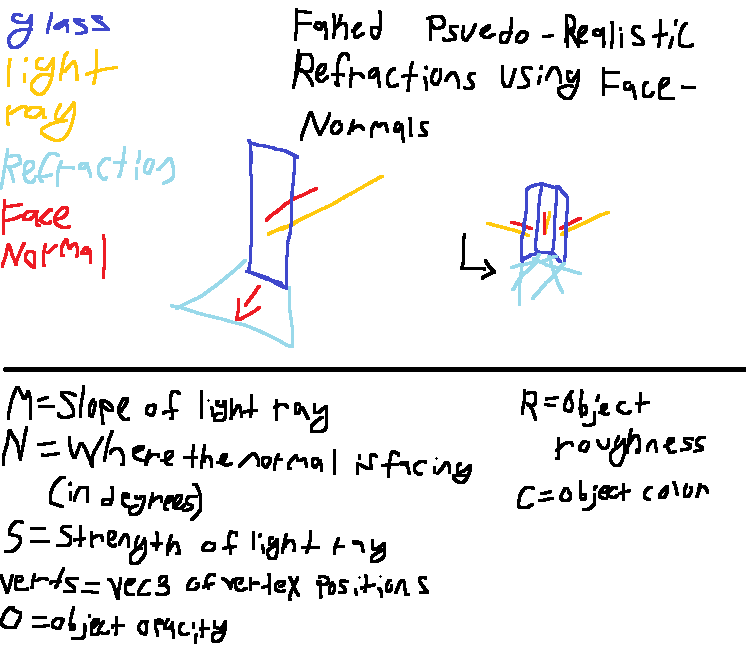 glass
light
ray
Refraction
Face
Normal
Faked Psvedo-Realistic
Refractions using Face-
Normals
M=Slope of light ray
N=Where the normal is facing
(in degrees)
S=Strength of light ray
verts=vec3 of vertex positions
O=object opacity
R=object
roughness
C=object color